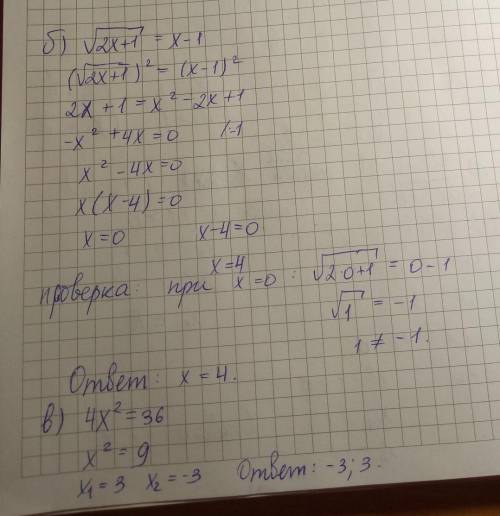 б) √(2x+1) = x-1
(√(2x+1))² = (x-1)²
2x + 1 = x² - 2x + 1
-x² + 4x = 0 /·-1
x² - 4x = 0
x(x-4) = 0
x = 0 x-4=0
x=4
проверка: при x=0 : √(2·0+1) = 0-1
√1 = -1
1 ≠ -1.
Ответ: x = 4.
в) 4x² = 36
x² = 9
x₁ = 3 x₂ = -3 Ответ: -3; 3.